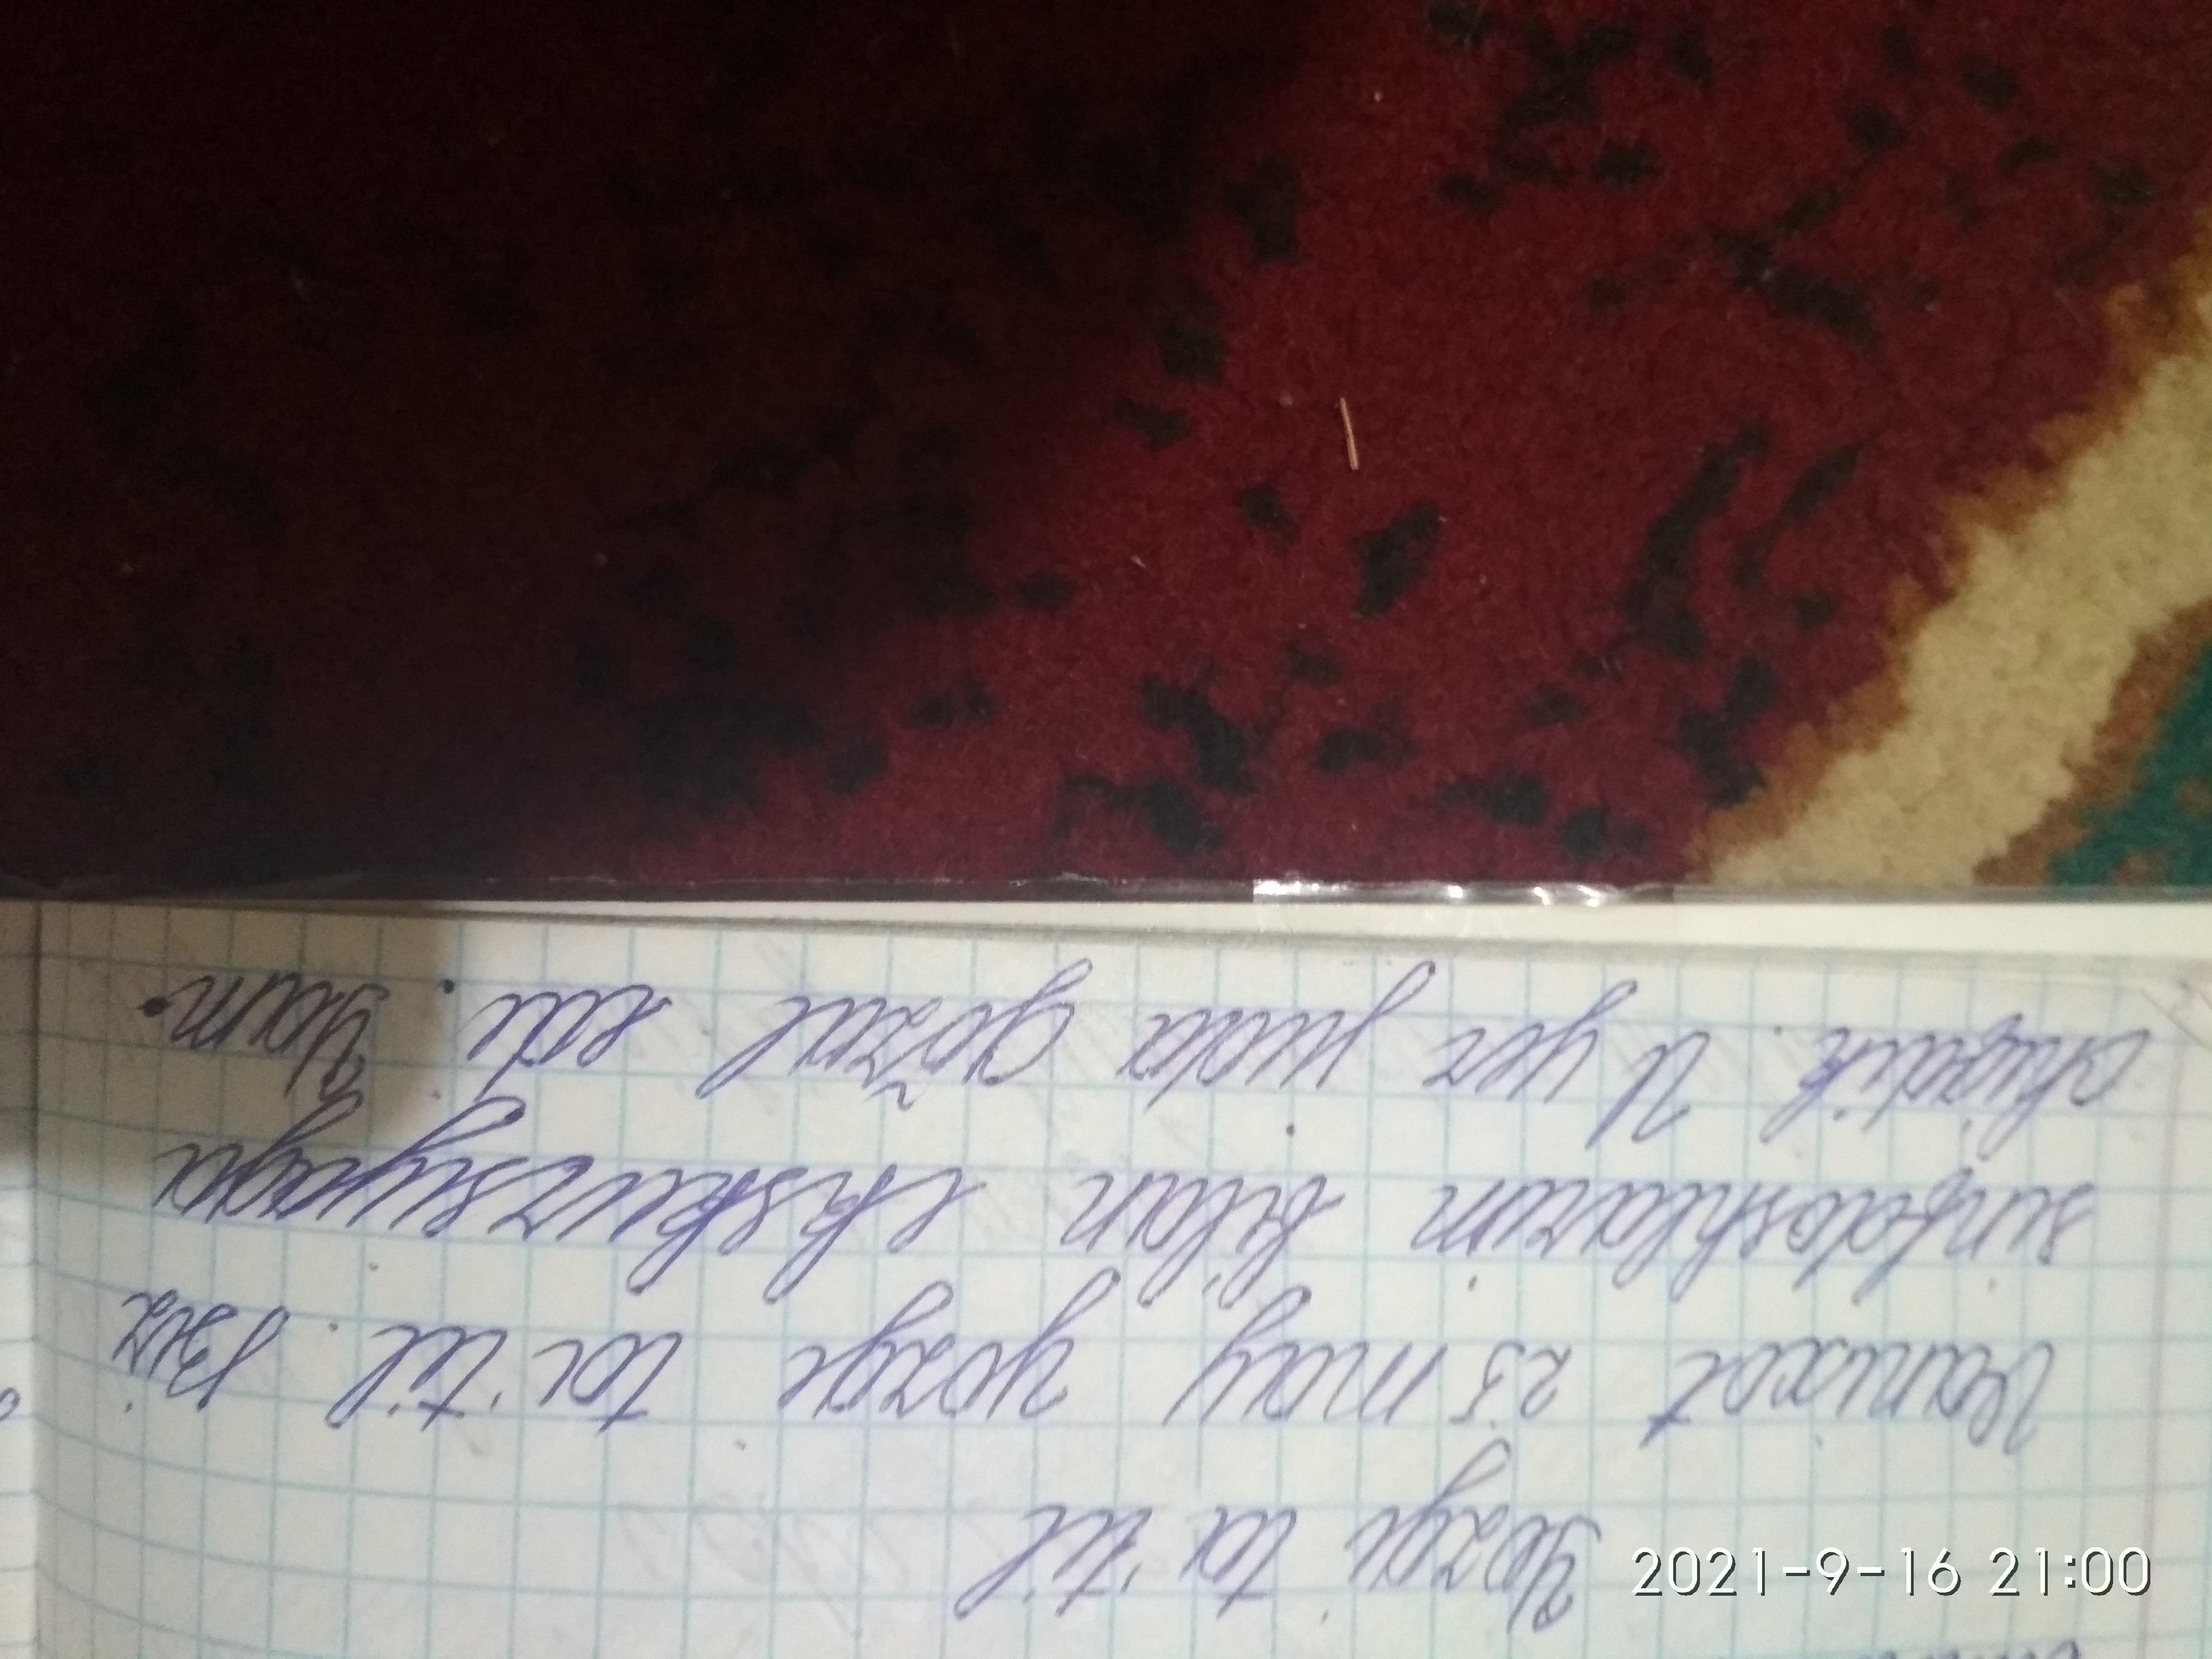 Yozgi ta'til
Vanixot 25 may yozgi ta'til. Biz
sinfdoshlarim bilan ekskursiyaga
chiqdik. U yer juda go'zal edi. Yam-
2021-9-16 21:00